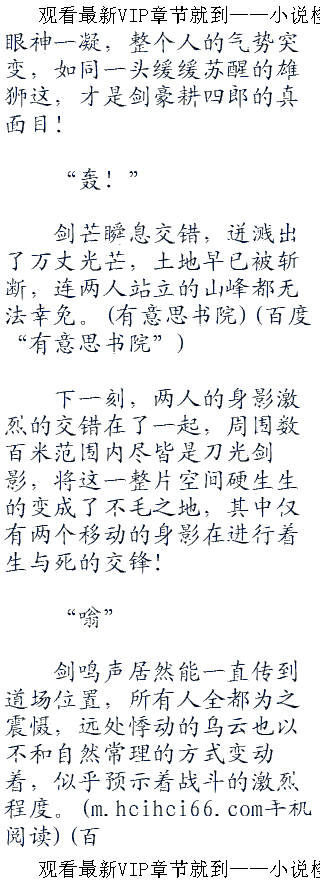 观看最新VIP章节就到——小说检
眼神一凝，整个人的气势突
变，如同一头缓缓苏醒的雄
狮这，才是剑豪耕四郎的真
面目！
“轰！”
剑芒瞬息交错，迸溅出
了万丈光芒，土地早已被斩
断，连两人站立的山峰都无
法幸免。(有意思书院)(百度
“有意思书院”)
下一刻，两人的身影激
烈的交错在了一起，周围数
百米范围内尽皆是刀光剑
影，将这一整片空间硬生生
的变成了不毛之地，其中仅
有两个移动的身影在进行着
生与死的交锋！
“嗡”
剑鸣声居然能一直传到
道场位置，所有人全都为之
震慑，远处悸动的乌云也以
不和自然常理的方式变动
着，似乎预示着战斗的激烈
程度。(m.hcihci66.com手机
阅读)(百
观看最新VIP章节就到——小说检